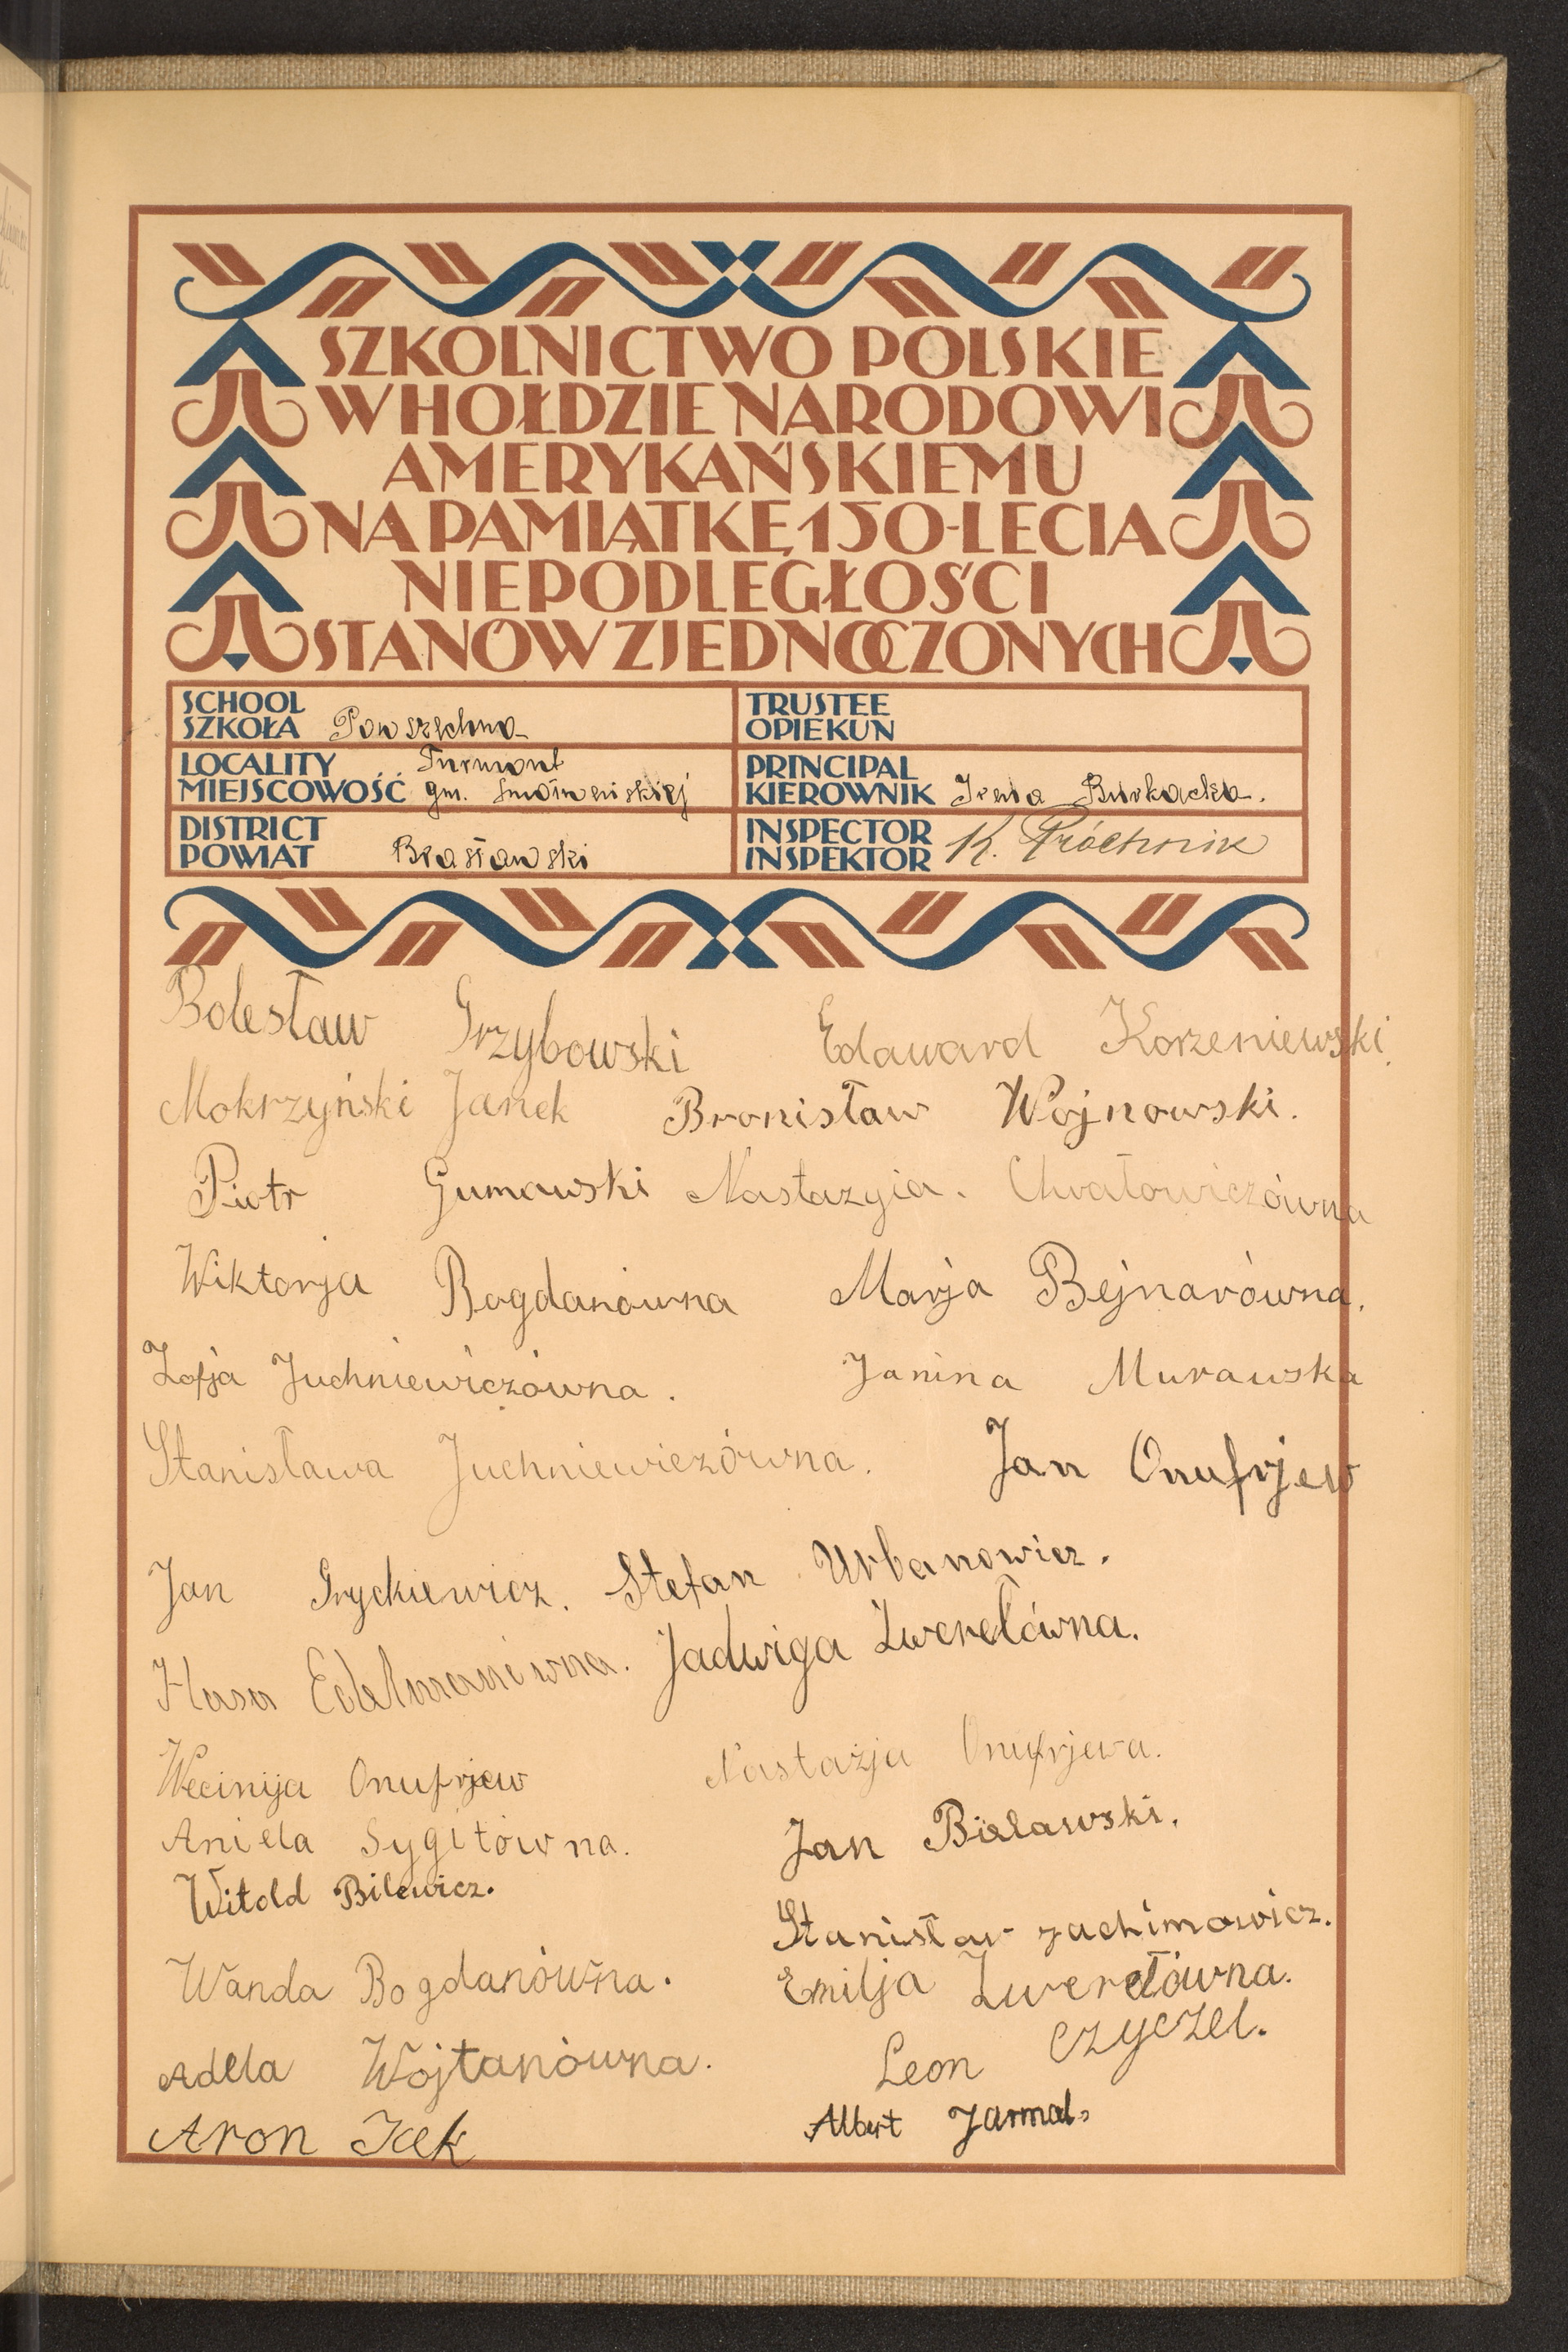 SZKOLNICTWO POLSKIE
W HOŁDZIE NARODOWI
AMERYKAŃSKIEMU
NA PAMIĄTKĘ 150-LECIA
NIEPODLEGŁOŚCI
STANÓW ZJEDNOCZONYCH
SCHOOL
SZKOŁA Powszechna
TRUSTEE
OPIEKUN
LOCALITY Turmont
MIEJSCOWOŚĆ gm. Smołweńskiej
PRINCIPAL
KIEROWNIK Irena Burkacka.
DISTRICT
POWIAT Brasławski
INSPECTOR
INSPEKTOR K. Próchnik
Bolesław Grzybowski Edaward Korzeniewski.
Mokrzyński Janek Bronisław Wojnowski.
Piotr Gumowski Nastazyia. Chvałowiczówna
Wiktorja Bogdanówna Marja Bejnarówna.
Zofja Juchniewiczówna. Janina Murawska
Stanisława Juchniewiczówna. Jan Onufrjew
Jan Gryckiewicz. Stefan Urbanowicz.
Hasa Edelmanówna. Jadwiga Zwerełówna.
Wecinija Onufrjew Nastazja Onufrjewa.
Aniela Sygitówna. Jan Bielawski.
Witold Bilewicz.
Stanisław jachimowicz.
Wanda Bogdanówna. Emilja Zwerełówna.
Adela Wojtanówna. Leon Czyczel.
Aron Icek Albert Jarmal.